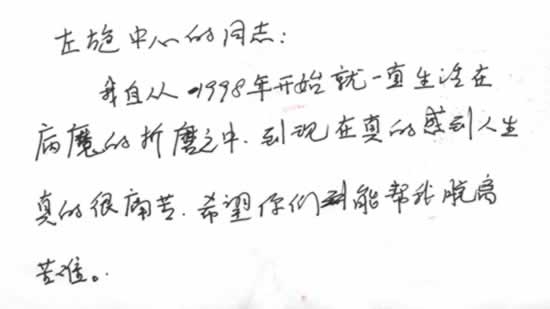 左旋中心的同志：
我自从1998年开始就一直生活在
病魔的折磨之中.到现在真的感到人生
真的很痛苦.希望你们能帮我脱离
苦难。